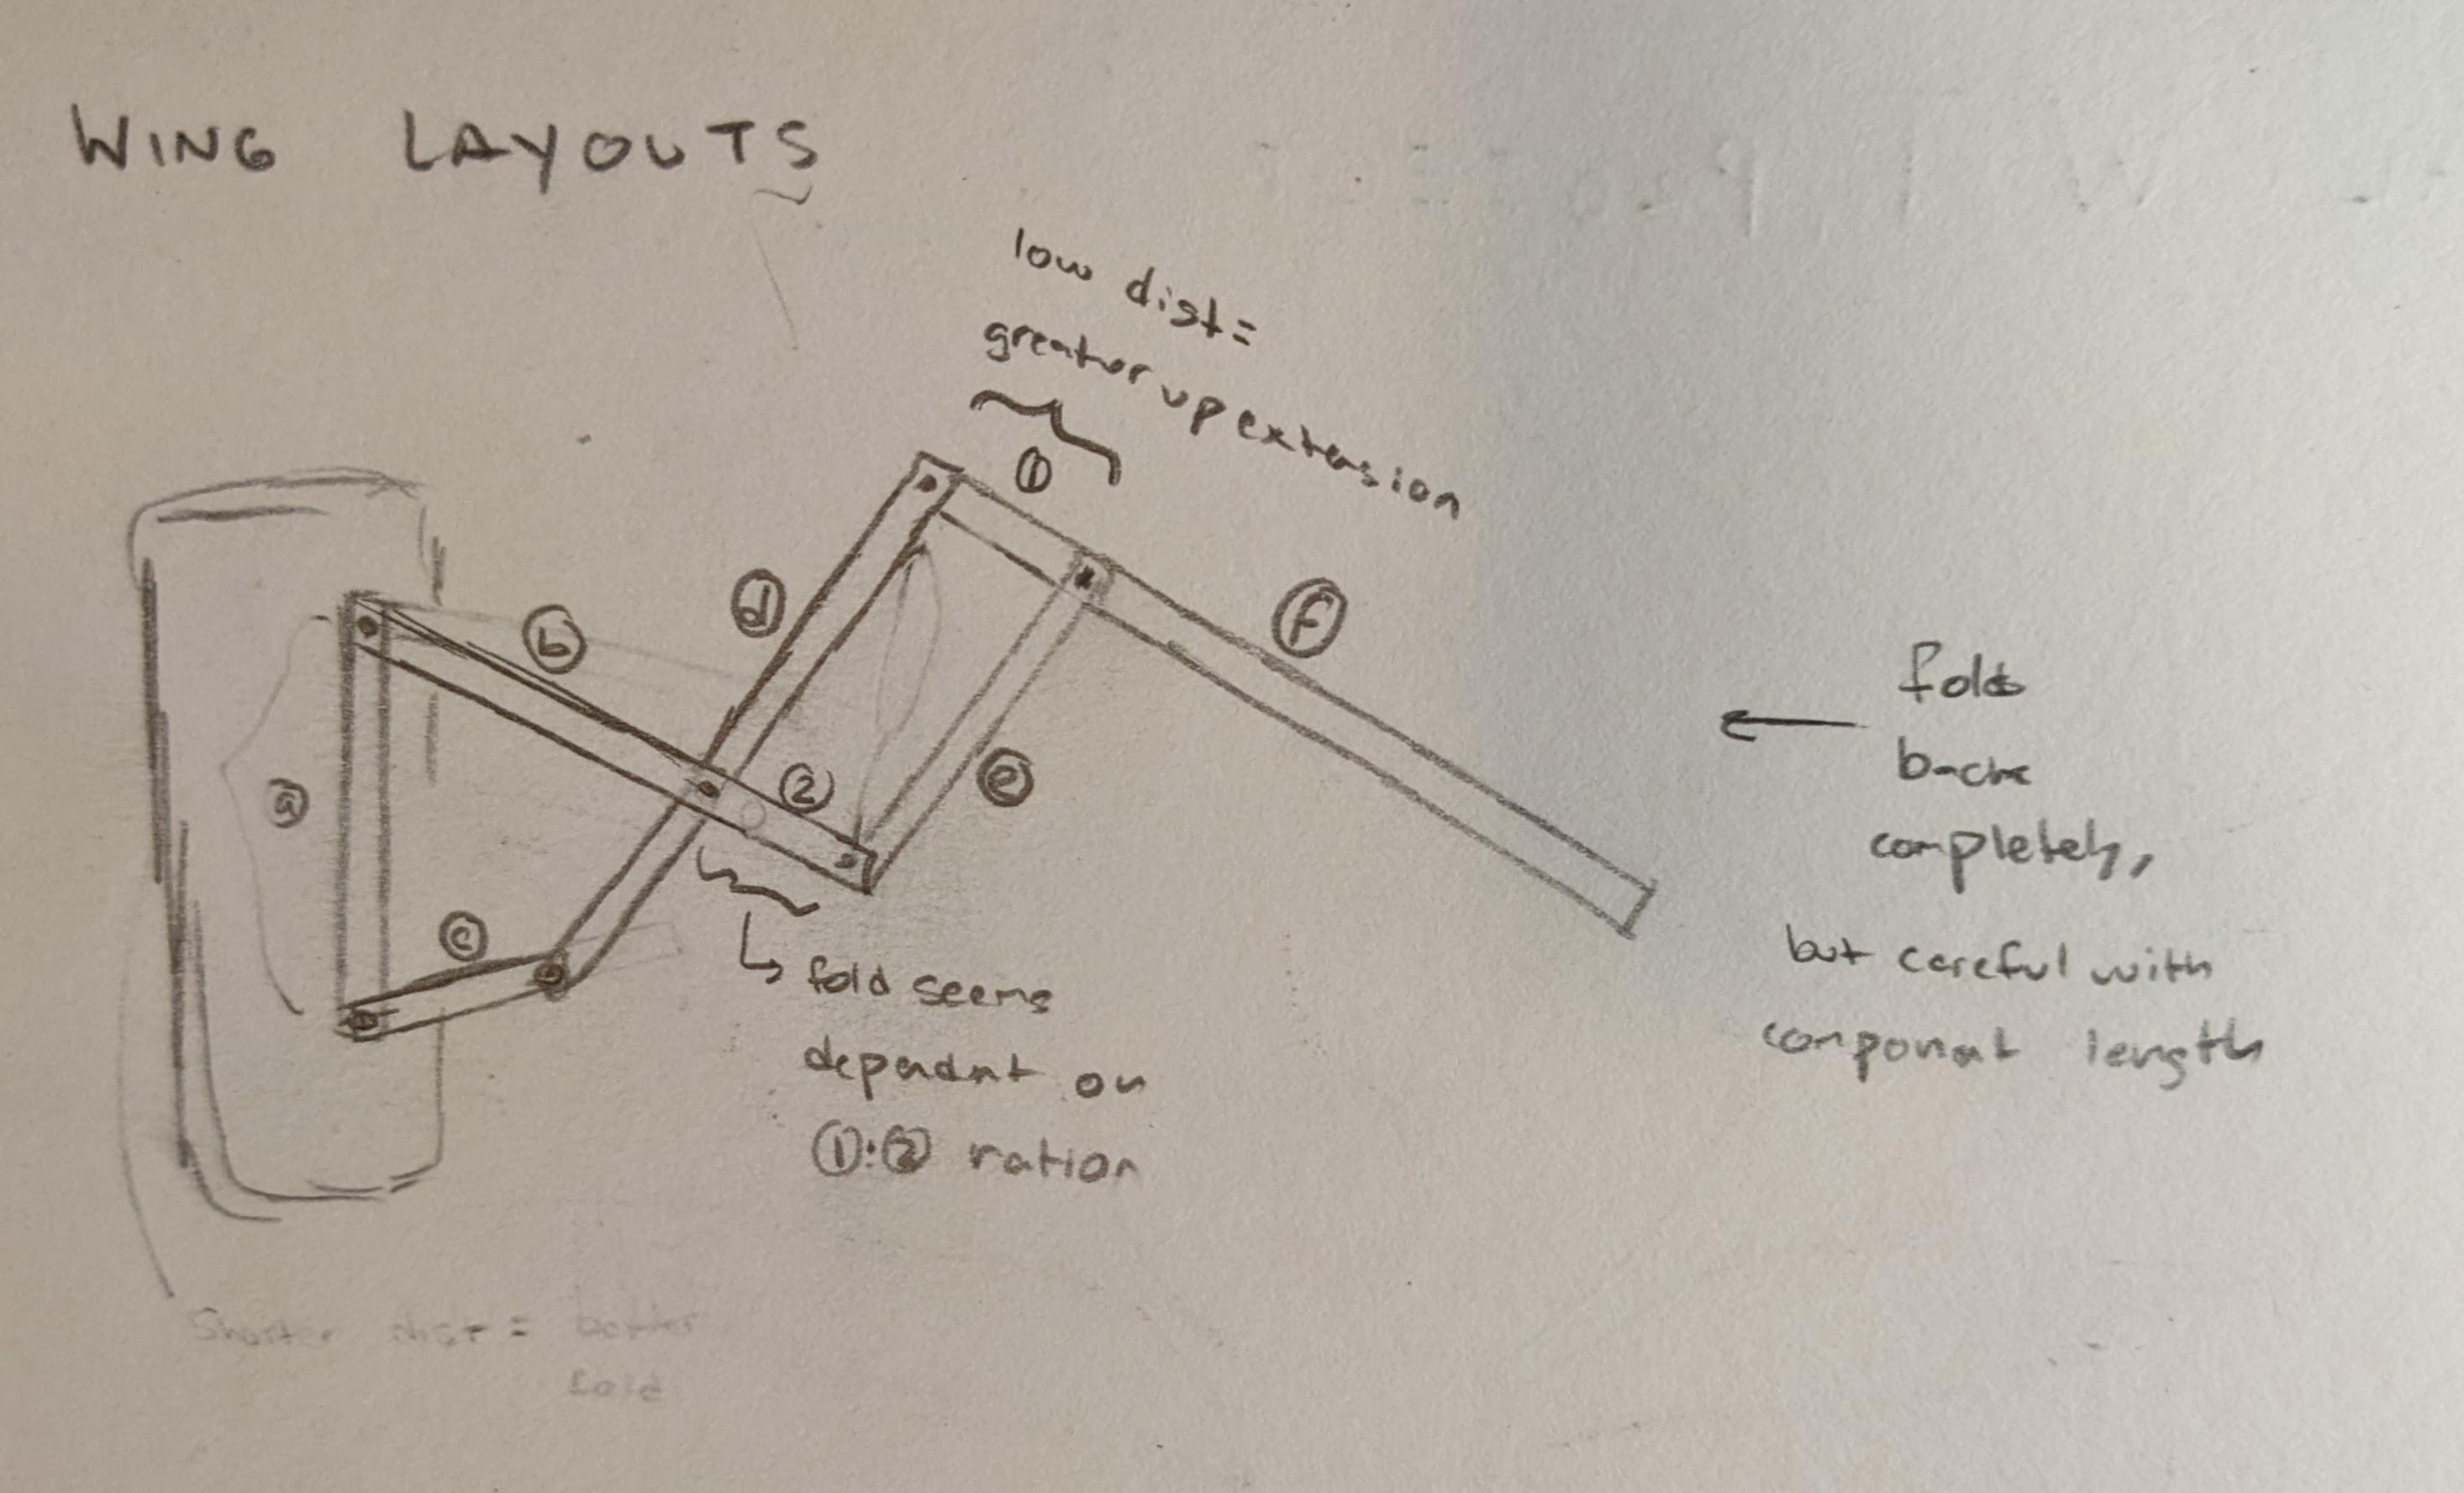 WING LAYOUTS
low dist=
greater up extension
①
ⓑ
ⓓ
ⓕ
ⓐ
②
ⓔ
ⓒ
folds
back
completely,
but careful with
component length
↳ fold seems
dependant on
①:② ration
Shorter dist = better
fold